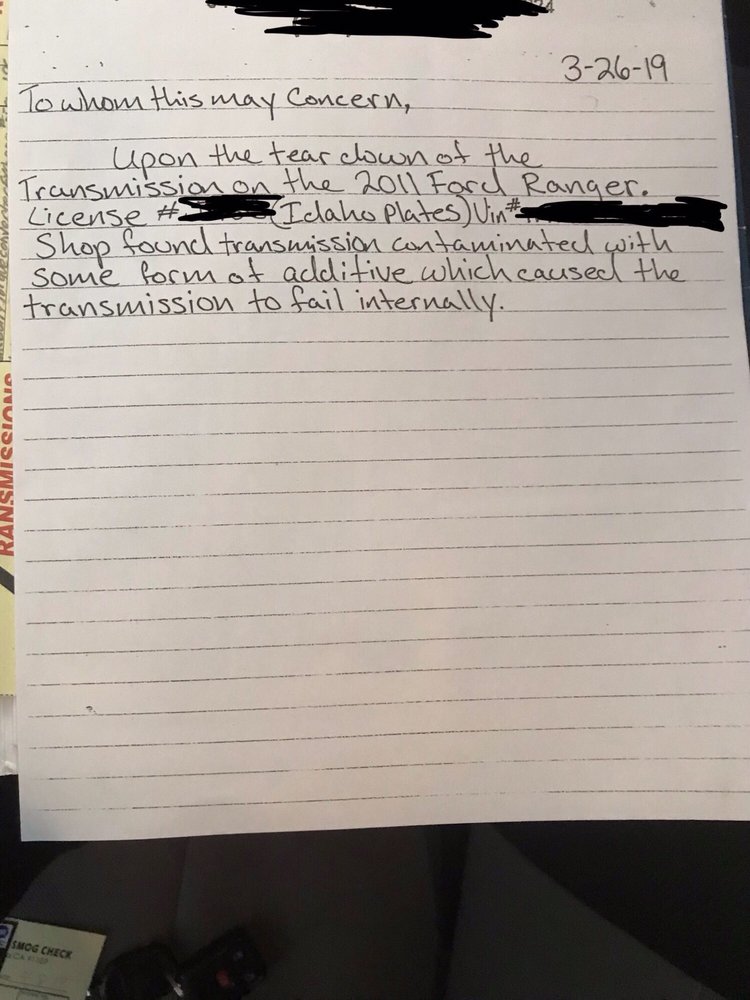 3-26-19
To whom this may Concern,
Upon the tear down of the
Transmission on the 2011 Ford Ranger.
License # (Idaho Plates) Vin#
Shop found transmission contaminated with
some form of additive which caused the
transmission to fail internally.
RANSMISSIONS
SMOG CHECK